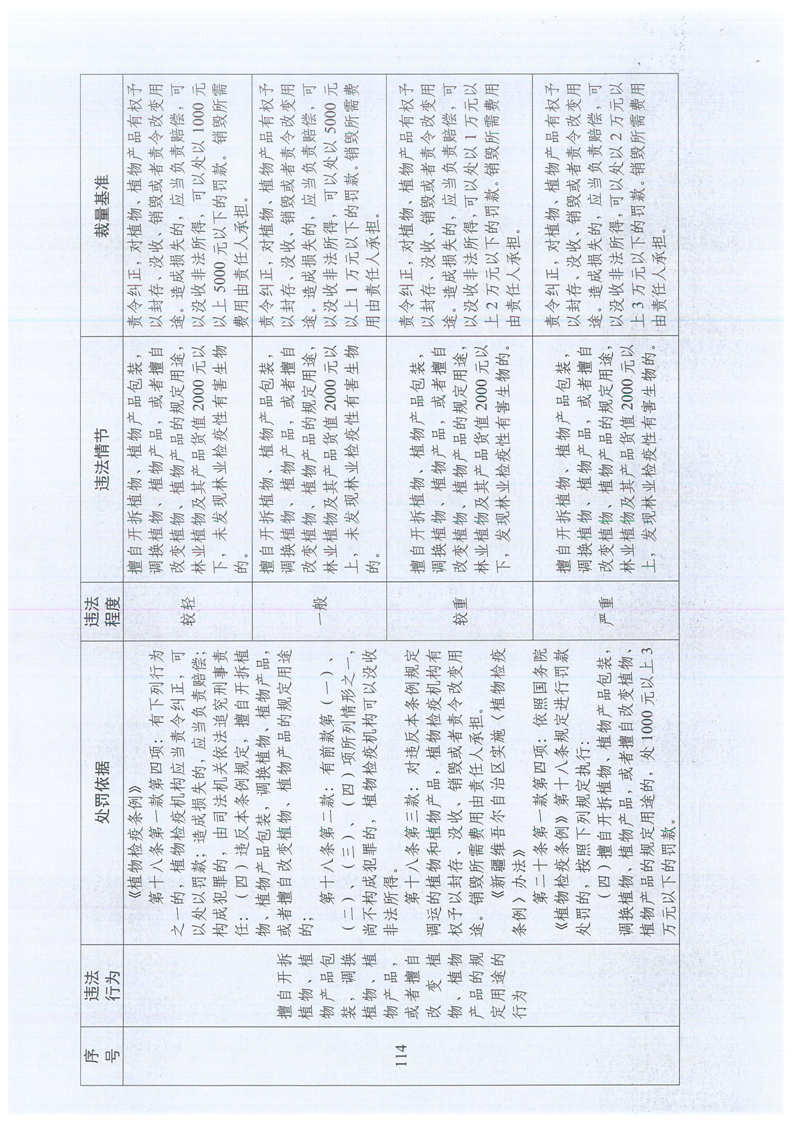 序
号
违法
行为
处罚依据
违法
程度
违法情节
裁量基准
114
擅自开拆
植物、植
物产品包
装，调换
植物、植
物产品，
或者擅自
改变植
物、植物
产品的规
定用途的
行为
《植物检疫条例》
第十八条第一款第四项：有下列行为
之一的，植物检疫机构应当责令纠正，可
以处以罚款；造成损失的，应当负责赔偿；
构成犯罪的，由司法机关依法追究刑事责
任：（四）违反本条例规定，擅自开拆植
物、植物产品包装，调换植物、植物产品，
或者擅自改变植物、植物产品的规定用途
的；
第十八条第二款：有前款第（一）、
（二）、（三）、（四）项所列情形之一，
尚不构成犯罪的，植物检疫机构可以没收
非法所得。
第十八条第三款：对违反本条例规定
调运的植物和植物产品，植物检疫机构有
权予以封存、没收、销毁或者责令改变用
途。销毁所需费用由责任人承担。
《新疆维吾尔自治区实施〈植物检疫
条例〉办法》
第二十条第一款第四项：依照国务院
《植物检疫条例》第十八条规定进行罚款
处罚的，按照下列规定执行：
（四）擅自开拆植物、植物产品包装，
调换植物、植物产品，或者擅自改变植物、
植物产品的规定用途的，处1000元以上3
万元以下的罚款。
较轻
擅自开拆植物、植物产品包装，
调换植物、植物产品，或者擅自
改变植物、植物产品的规定用途，
林业植物及其产品货值2000元以
下，未发现林业检疫性有害生物
的。
责令纠正，对植物、植物产品有权予
以封存、没收、销毁或者责令改变用
途。造成损失的，应当负责赔偿，可
以没收非法所得，可以处以1000元
以上5000元以下的罚款。销毁所需
费用由责任人承担。
一般
擅自开拆植物、植物产品包装，
调换植物、植物产品，或者擅自
改变植物、植物产品的规定用途，
林业植物及其产品货值2000元以
上，未发现林业检疫性有害生物
的。
责令纠正，对植物、植物产品有权予
以封存、没收、销毁或者责令改变用
途。造成损失的，应当负责赔偿，可
以没收非法所得，可以处以5000元
以上1万元以下的罚款。销毁所需费
用由责任人承担。
较重
擅自开拆植物、植物产品包装，
调换植物、植物产品，或者擅自
改变植物、植物产品的规定用途，
林业植物及其产品货值2000元以
下，发现林业检疫性有害生物的。
责令纠正，对植物、植物产品有权予
以封存、没收、销毁或者责令改变用
途。造成损失的，应当负责赔偿，可
以没收非法所得，可以处以1万元以
上2万元以下的罚款。销毁所需费用
由责任人承担。
严重
擅自开拆植物、植物产品包装，
调换植物、植物产品，或者擅自
改变植物、植物产品的规定用途，
林业植物及其产品货值2000元以
上，发现林业检疫性有害生物的。
责令纠正，对植物、植物产品有权予
以封存、没收、销毁或者责令改变用
途。造成损失的，应当负责赔偿，可
以没收非法所得，可以处以2万元以
上3万元以下的罚款。销毁所需费用
由责任人承担。